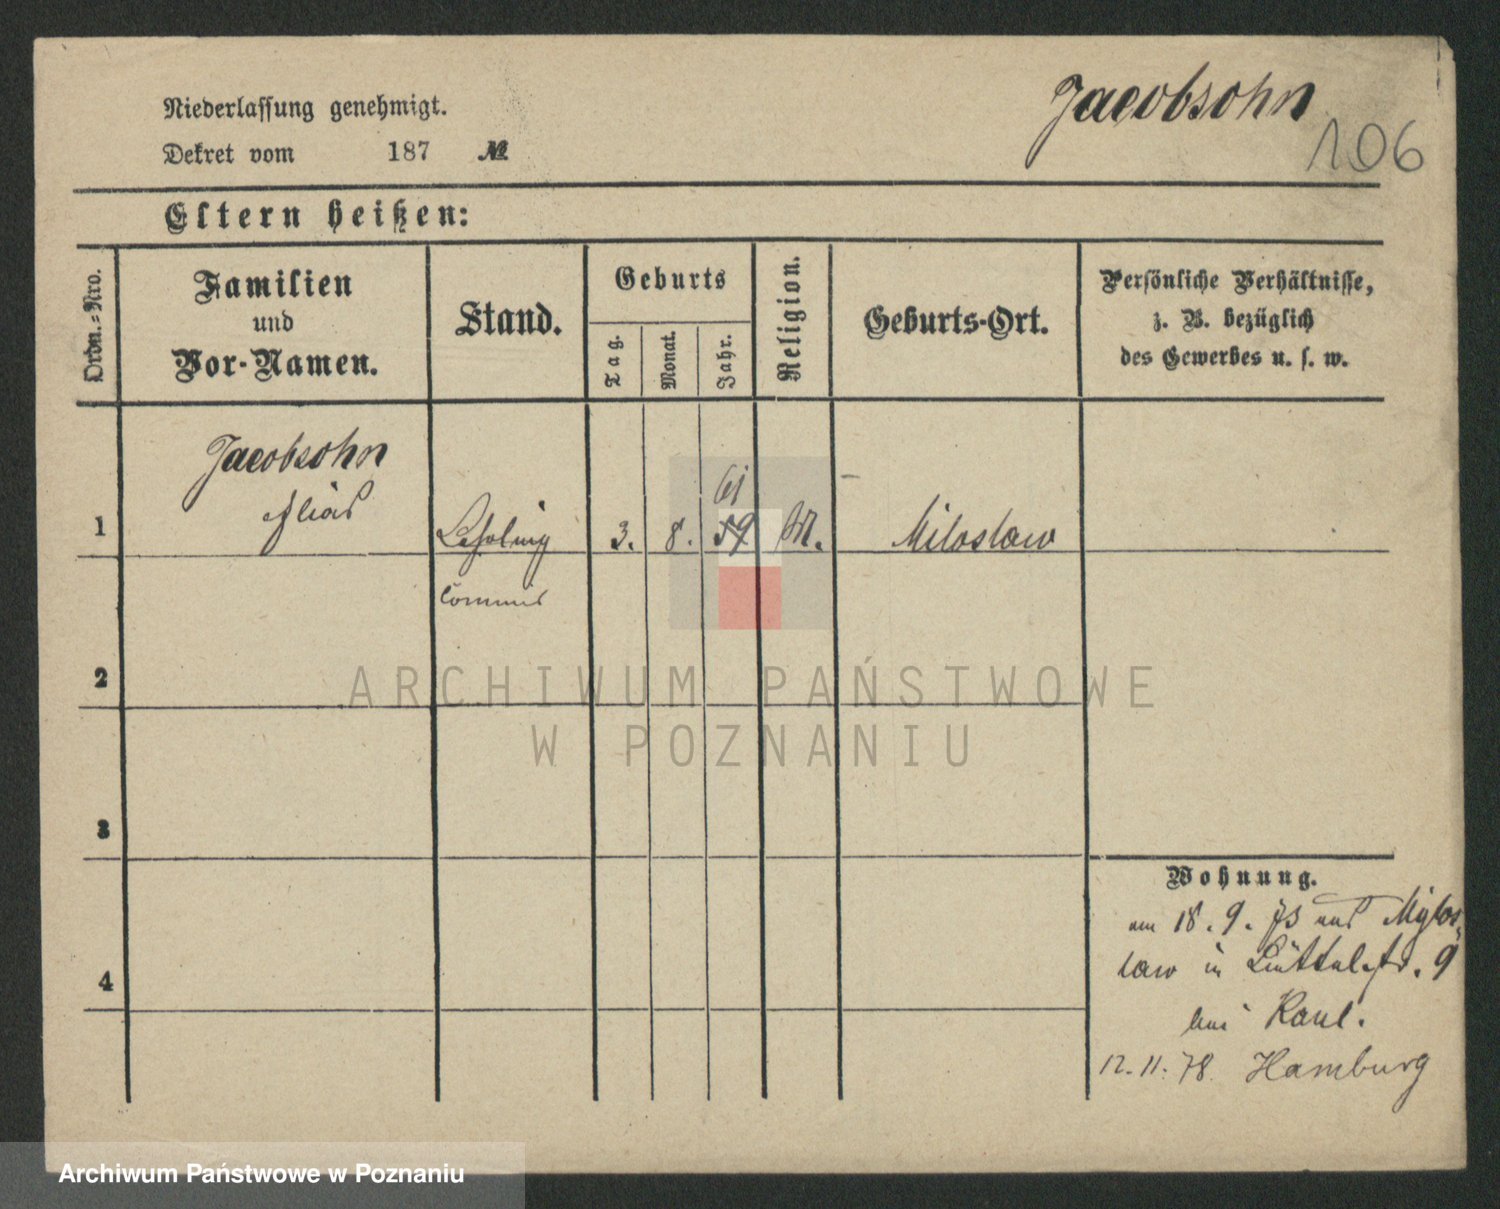 Niederlassung genehmigt.
Dekret vom 187 №
Jacobsohn
106
Eltern heißen:
Ordn.-Nro.
Familien
und
Vor-Namen.
Stand.
Geburts
Tag.
Monat.
Jahr.
Religion.
Geburts-Ort.
Persönliche Verhältnisse,
z. B. bezüglich
des Gewerbes u. s. w.
Jacobsohn
Elias
61
1 Lehrling 3. 8. 59 M. Miloslaw
Commis
2
ARCHIWUM PAŃSTWOWE
W POZNANIU
3
Wohnung.
am 18. 9. 73 aus Mylos-
law in 9
bei
4
12. 11. 78. Hamburg
Archiwum Państwowe w Poznaniu